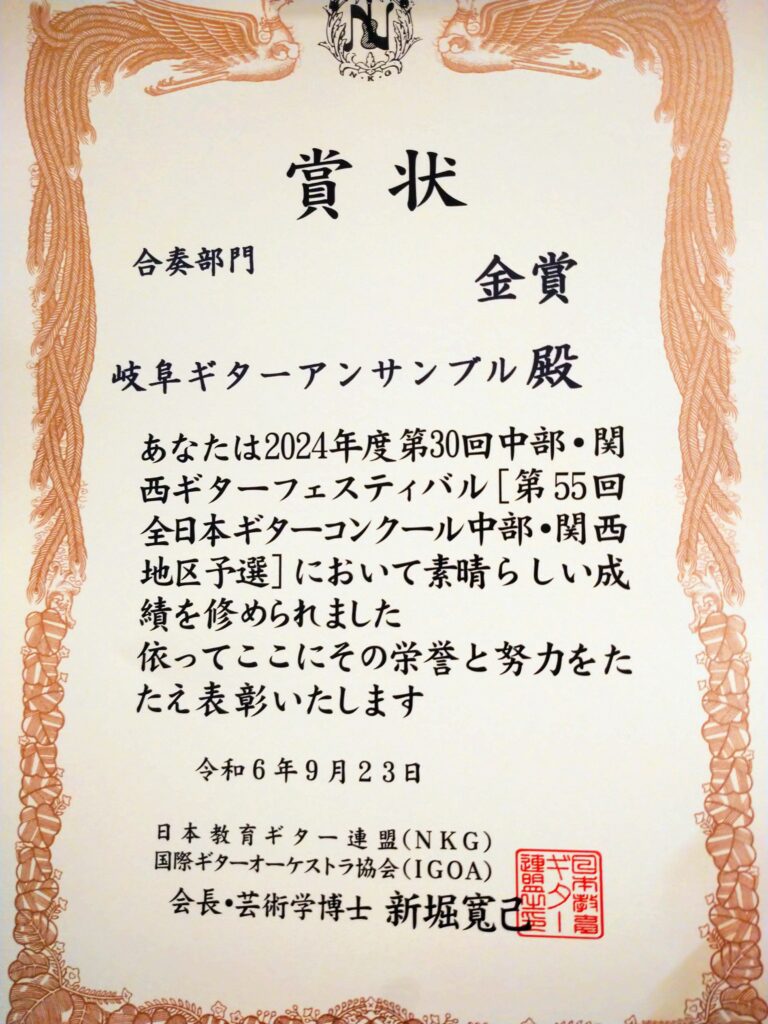 N.K.G
賞状
合奏部門
金賞
岐阜ギターアンサンブル殿
あなたは2024年度第30回中部・関
西ギターフェスティバル[第55回
全日本ギターコンクール中部・関西
地区予選]において素晴らしい成
績を修められました
依ってここにその栄誉と努力をた
たえ表彰いたします
令和6年9月23日
日本教育ギター連盟(NKG)
国際ギターオーケストラ協会(IGOA)
会長・芸術学博士 新堀寛己
日本教育
ギター
連盟之印